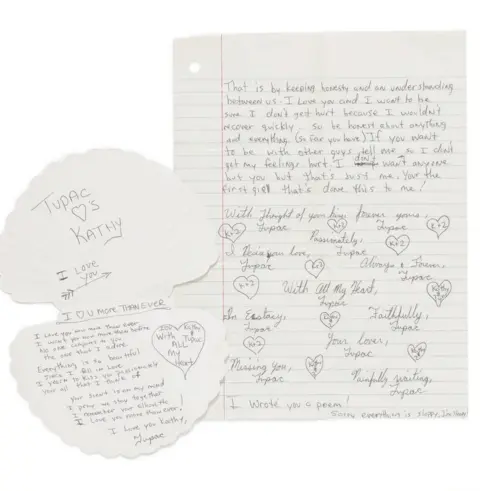 That is by keeping honesty and an understanding
between us. I Love you and I want to be
sure I don't get hurt because I wouldn't
recover quickly. So be honest about anything
and everything. (So far you have) If you want
to be with other guys tell me so I don't
get my feelings hurt. I don't want anyone
but you but that's just me. Your the
first girl that's done this to me!
With thought of your kiss forever yours,
Tupac
K+2
K+2
Passionately,
Tupac
K+2
love,
Tupac
K+2
Always & Forever,
Tupac
K+2
With All My Heart,
Tupac
In Ecstacy,
Tupac
Faithfully,
Tupac
Your lover,
Tupac
Missing you,
Tupac
Painfully waiting,
Tupac
I Wrote you a poem!
Sorry everything is sloppy.
TUPAC
♡'S
KATHY
I LOVE
YOU
I ♡ U MORE THAN EVER
I Love you now more than ever
I want you now more than before
No one compares to you
the one that I adore
Everything is so beautiful
since I fell in love
I yearn to kiss you passionately
your all that I think of
your heart is on my mind
I pray we stay together
I remember your
I Love you more than ever,
I Love you Kathy,
Tupac
With
ALL
My
Heart
Kathy
Tupac